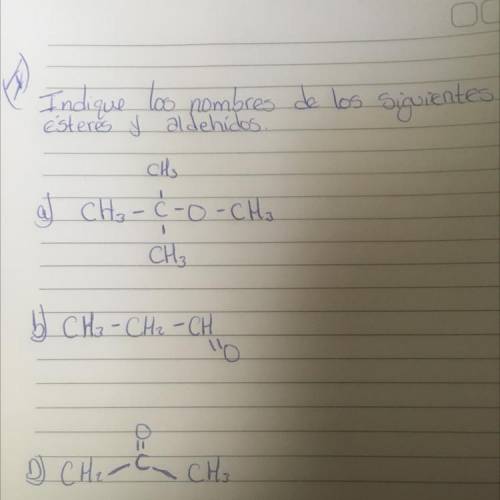 Indique los nombres de los siguientes
ésteres y aldehídos.
CH3
a) CH3 - C - O - CH3
CH3
b) CH3 - CH2 - CH
O
O
D) CH2 C CH3